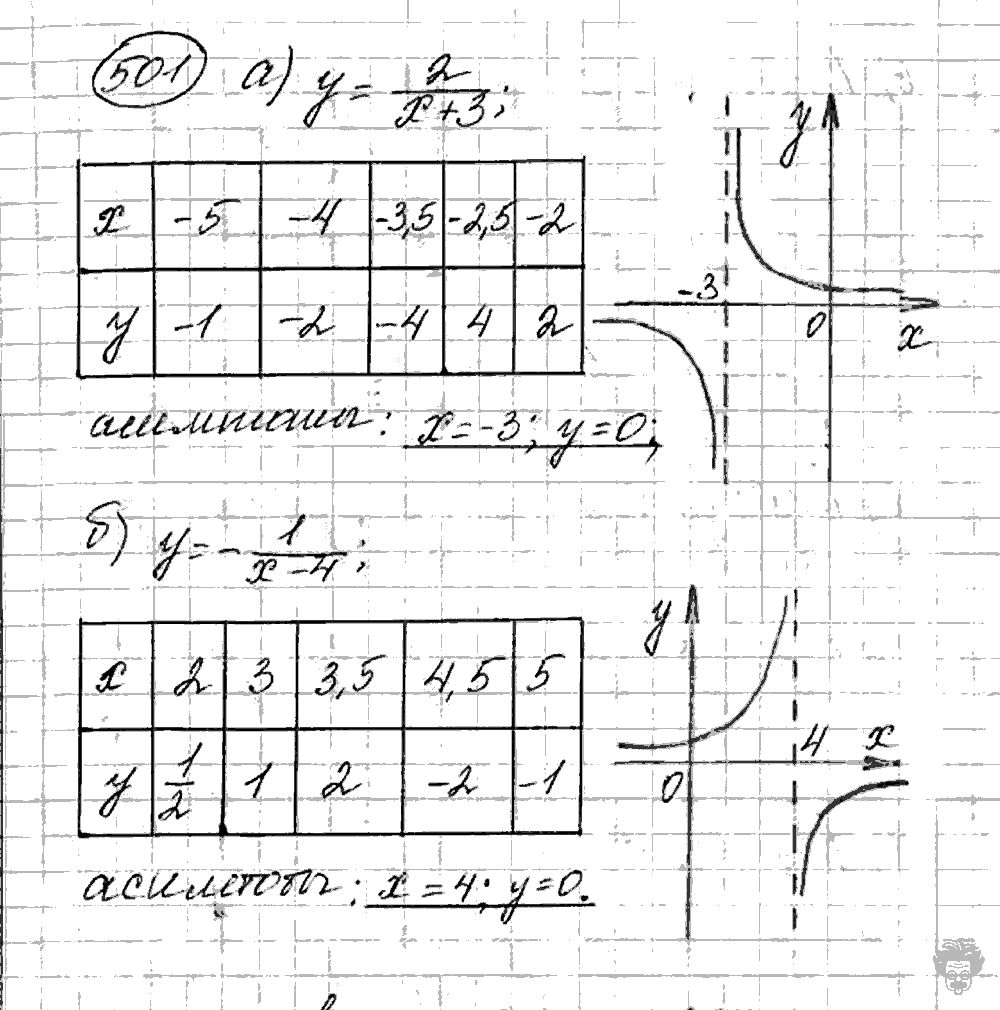 501 а) y = 2/(x+3);
x -5 -4 -3,5 -2,5 -2
y -1 -2 -4 4 2
асимптоты: x=-3; y=0;
y
-3
0 x
б) y = - 1/(x-4);
x 2 3 3,5 4,5 5
y 1/2 1 2 -2 -1
асимптоты: x=4; y=0.
y
4 x
0